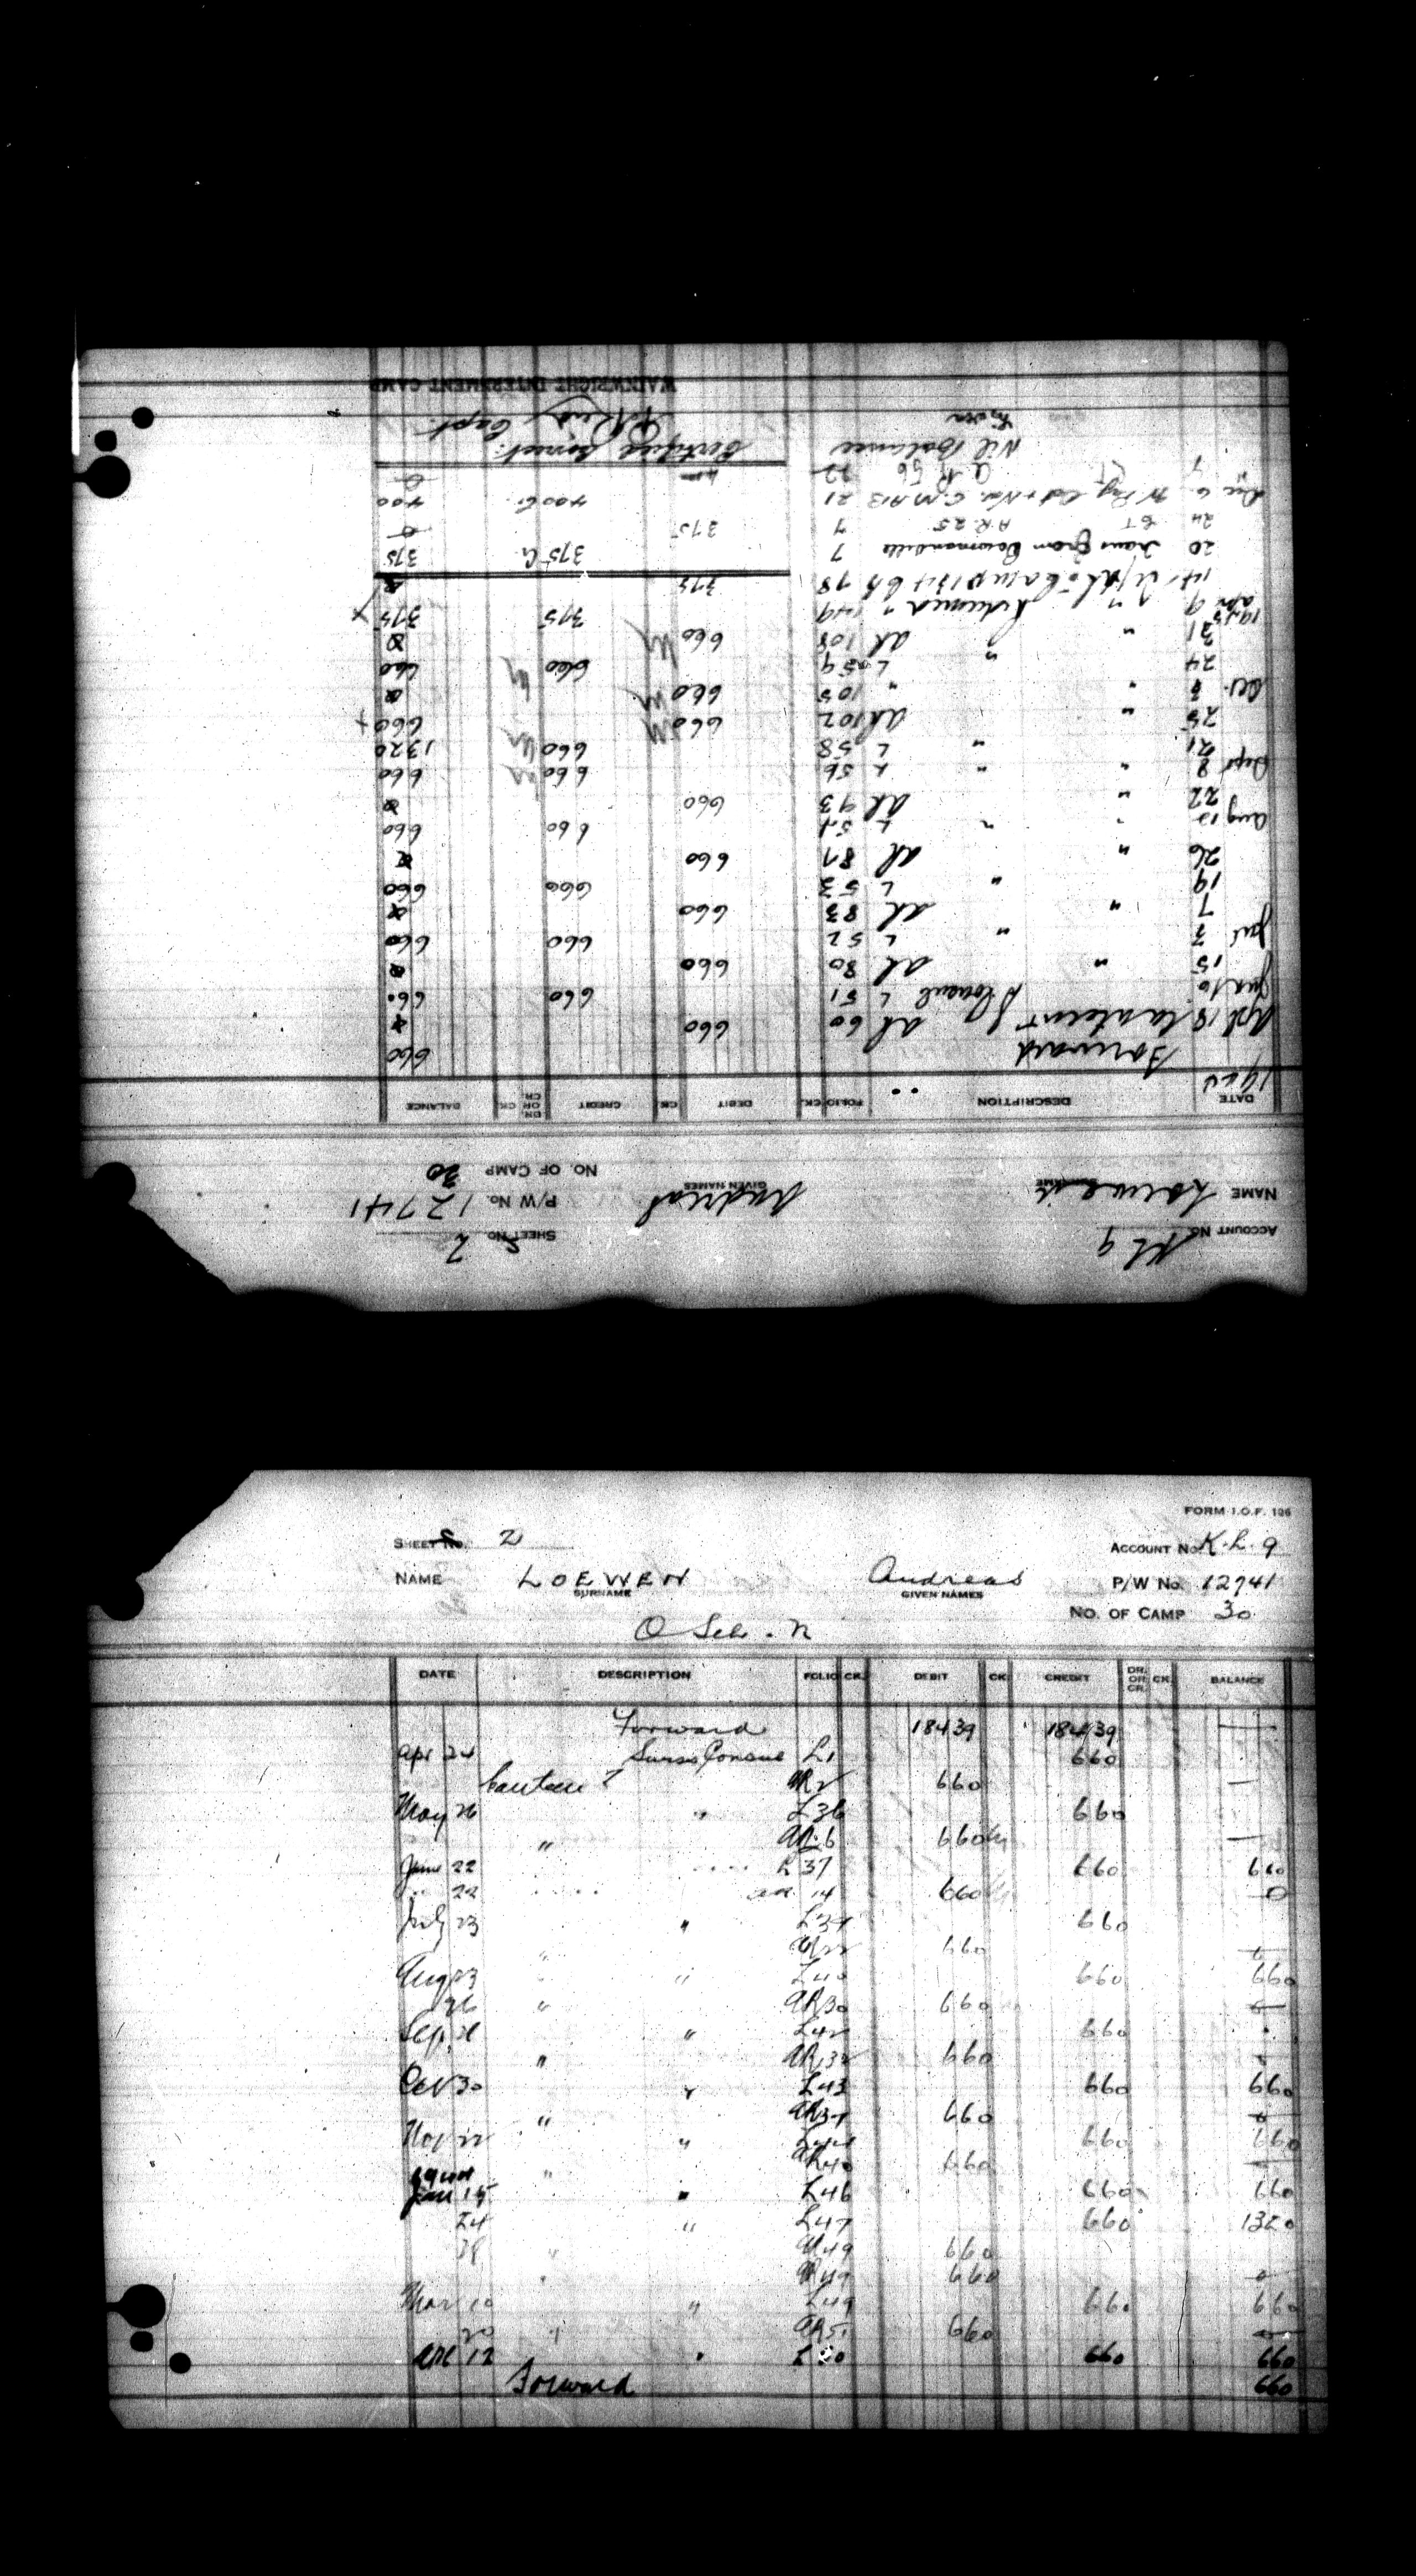 FORM I.O.F. 106
SHEET No. 2 ACCOUNT No. K.L. 9
NAME LOEWEN Andreas P/W No. 12741
SURNAME GIVEN NAMES
NO. OF CAMP 30
DATE DESCRIPTION FOLIO CK. DEBIT CK. CREDIT DR. OR CR. CK. BALANCE
Forward 184 39 184 39 —
Apr 24 Swiss Consul L1 660
Canteen AR2 660 —
May 26 " L36 660
" AR6 660 —
June 22 L37 660 660
22 AR 14 660 0
July 23 " L37 660
" 660
Aug 23 " " L40 660 660
26 " AR30 660
Sep. " L42 660
" AR32 660
Oct 30 " L43 660 660
" AR37 660
Nov 22 " L44 660 660
" AR40 660
Jan 15 " L46 660 660
24 " L47 660 1320
" AR49 660
" AR49 660
Mar 10 " L49 660 660
20 " AR51 660
Apl 12 " L50 660 660
Forward 660
ACCOUNT No. KL 9 SHEET No. 2
NAME Loewen Andreas P/W No. 12741
SURNAME GIVEN NAMES
NO. OF CAMP 30
DATE DESCRIPTION FOLIO CK. DEBIT CK. CREDIT DR. OR CR. CK. BALANCE
Forward 660
Apl 18 Canteen AR 60 660
Jun 10 L 51 660 660
15 " AR 80 660
Jul 3 " L 52 660 660
7 " AR 83 660
19 " L 53 660 660
26 " AR 87 660
Aug 12 " " L 54 660 660
22 " AR 93 660
Sept 8 " " L 56 660 660
21 " L 58 660 1320
25 " AR 102 660 660
Oct. 3 " " 105 660
24 " L 59 660 660
31 " AR 108 660
1945
Apr 9 " Returned " 149 375 375
14 78 375
20 Trans from Bowmanville 7 375 Cr 375
24 CT AR 25 7 375 0
Dec 6 W Pay Oct & Nov. CMA 13 21 400 Cr. 400
7 CT AR 56 22 0
Nil Balance Certified Correct.
Capt.
WAINWRIGHT INTERNMENT CAMP